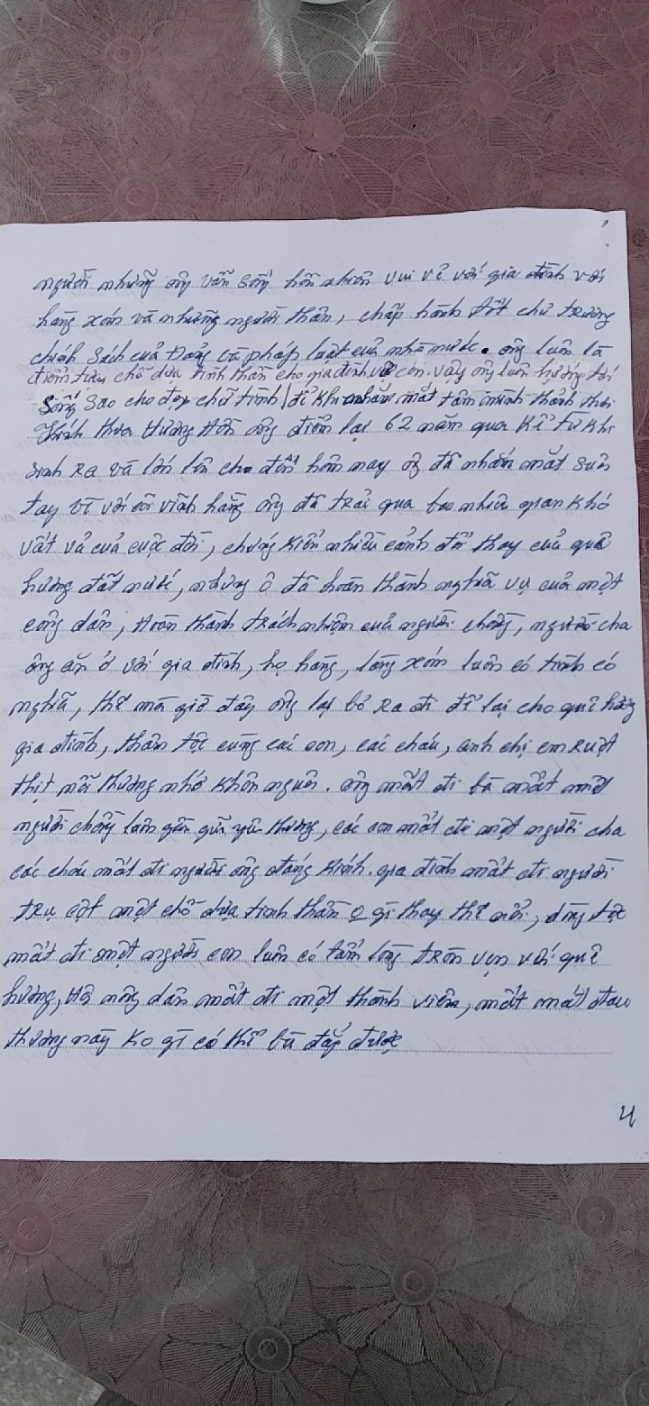 người nhưng ông vẫn sống hồn nhiên vui vẻ với gia đình với
hàng xóm và những người thân, chấp hành tốt chủ trương
chính sách của Đảng và pháp luật của nhà nước. ông luôn là
điểm tựa chỗ dựa tinh thần cho gia đình vợ con. vậy ông luôn hướng tới
sống sao cho đẹp chữ tình để khi nhắm mắt tâm mình thảnh thơi
Kính thưa hương hồn ông điểm lại 62 năm qua kể từ khi
sinh ra và lớn lên cho đến hôm nay ô đã nhắm mắt xuôi
tay về với cõi vĩnh hằng ông đã trải qua bao nhiêu gian khó
vất vả của cuộc đời, chứng kiến nhiều cảnh đổi thay của quê
hương đất nước, nhưng ô đã hoàn thành nghĩa vụ của một
công dân, hoàn thành trách nhiệm của người chồng, người cha
ông ăn ở với gia đình, họ hàng, làng xóm luôn có tình có
nghĩa, thế mà giờ đây ông lại bỏ ra đi để lại cho quê hương
gia đình, thân tộc cùng các con, các cháu, anh chị em ruột
thịt nỗi thương nhớ khôn nguôi. ông mất đi bà mất một
người chồng luôn gần gũi yêu thương, các con mất đi một người cha
các cháu mất đi người ông đáng kính. gia đình mất đi người
trụ cột một chỗ dựa tinh thần o gì thay thế nổi, dòng tộc
mất đi một người con luôn có tấm lòng trọn vẹn với quê
hương, Hộ nông dân mất đi một thành viên, mất mát đau
thương này ko gì có thể bù đắp được
4